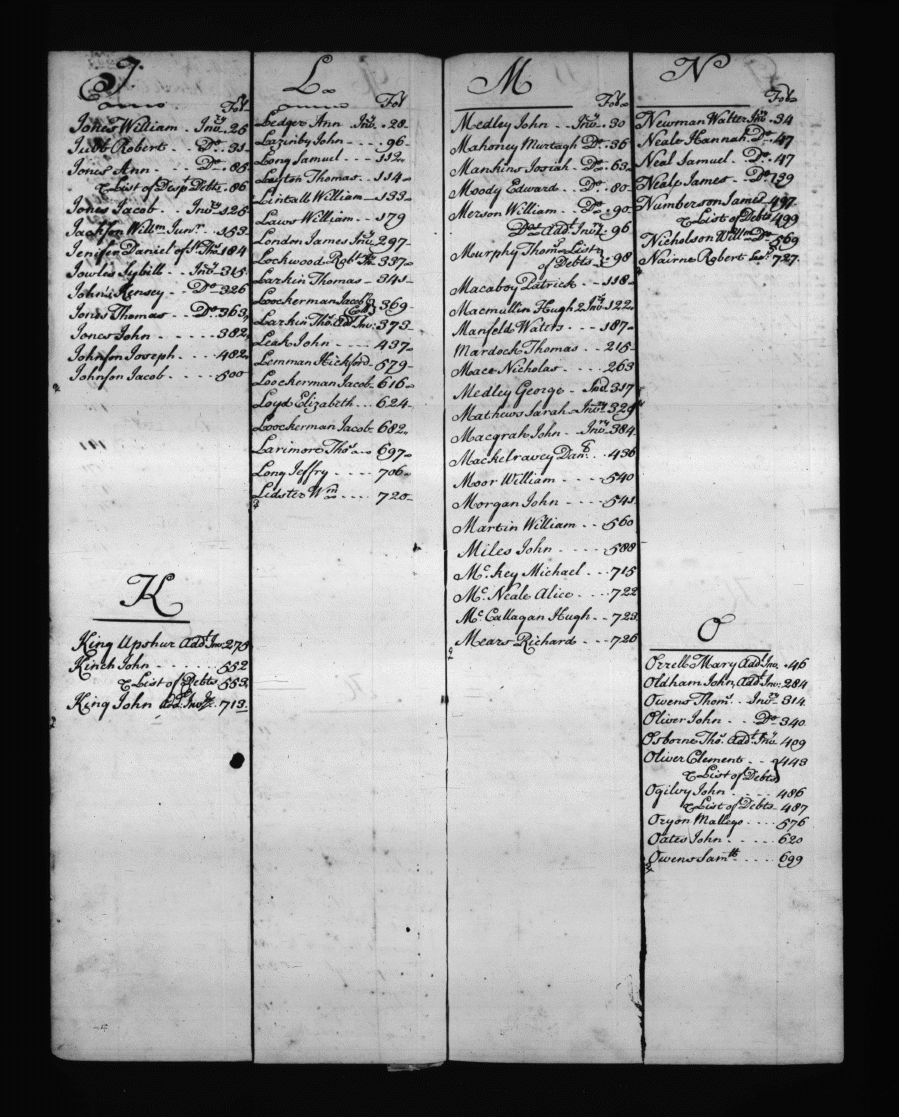 J.
Fol.
Jones William . Inv.ry 25
Jubb Roberts . . Do. 31
Jones Ann . . . Do. 85
& List of Desp.t Debts . 86
Jones Jacob . . Inv.ry 125
Jackson Will.m Jun.r . . 153
Jenifer Daniel of S.t Tho.s 184
Jowles Sybill . . Inv.ry 315
Johns Kensey . . Do. 326
Jones Thomas . . Do. 363
Jones John . . . . 382
Johnson Joseph . . . . 482
Johnson Jacob . . . . 500
K
King Upshur Add.l Inv: 275
Kinch John . . . . . . 552
& List of Debts 553
King John Add.l Inv.ry &c. 713
L
Fol
Ledger Ann Inv.ry 28
Lazinby John . . . . 96
Long Samuel . . . . 112
Layton Thomas . . . 114
Lintall William 133
Laws William . . . 179
London James Inv.ry 297
Lockwood Rob.t 337
Larkin Thomas 345
Loockerman Jacob
Col.o } 369
Larkin Tho.s Add.l Inv: 373
Leak John . . . . 437
Lemman Hickford 579
Loockerman Jacob 616
Loyd Elizabeth . . . 624
Loockerman Jacob 682
Larimore Tho.s . . 697
Long Jeffry . . . . 706
Lidster W.m . . . . 720
M
Fol.
Medley John . . Inv.ry 30
Mahoney Murtagh Do. 36
Mankins Josiah Do. 63
Moody Edward . . Do. 80
Merson William . . Do. 90
Do. Add.l Inv.ry 96
Murphy Thom.s List
of Debts } 98
Macaboy Patrick . . . 118
Macmullin Hugh 2 Inv.rs 122
Manfeld Watters . . . 187
Mardock Thomas . . . 215
Mace Nicholas . . . . 263
Medley George 317
Mathews Sarah Inv.ry 329
Macgrah John . . Inv.ry 384
Mackelravey Dan.l . . 436
Moor William . . . . 540
Morgan John . . . . 541
Martin William . . . 560
Miles John . . . . . 588
M.c Key Michael . . . 715
M.c Neale Alice . . . 722
M.c Callagan Hugh . . 723
Mears Richard . . . 726
N
Fol.
Newman Walter Inv.ry 34
Neale Hannah Do. 47
Neal Samuel . . Do. 47
Neale James . . Do. 139
Numberson James 497
& List of Debts 499
Nicholson Will.m Do. 569
Nairne Robert 727
O
Orrell Mary Add.l Inv. 46
Oldham John, Add.l Inv: 284
Owens Thom.s . . Inv.ry 314
Oliver John . . . Do. 340
Osborne Tho.s Add.l Inv. 409
Oliver Clement . . } 443
& List of Debts
Ogilvy John . . . . . 486
& List of Debts 487
Oryon Mallego . . . . 576
Oates John . . . . . 620
Owens Sam.ll . . . . 699